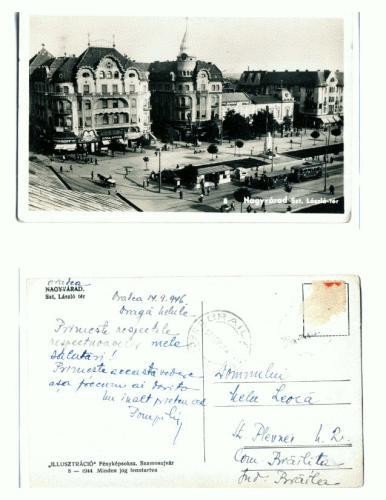 8 Nagyvárad Szt. László-tér
Oradea
NAGYVÁRAD.
Szt. László tér
Oradea 14.9.946
Dragă Nelule
Primește respectele
respectuoase, mele
salutări!
Primește această vedere
așa precum ai dorit
un înalt prieten al
Pompiliu
BRAILA
Domnului
Nelu
Str Plevnei N. 2
Com Brăilița
Jud. Brăila
„ILLUSZTRÁCIÓ” Fényképészka. Szamosujvár
8 — 1944 Minden jog fenntartva